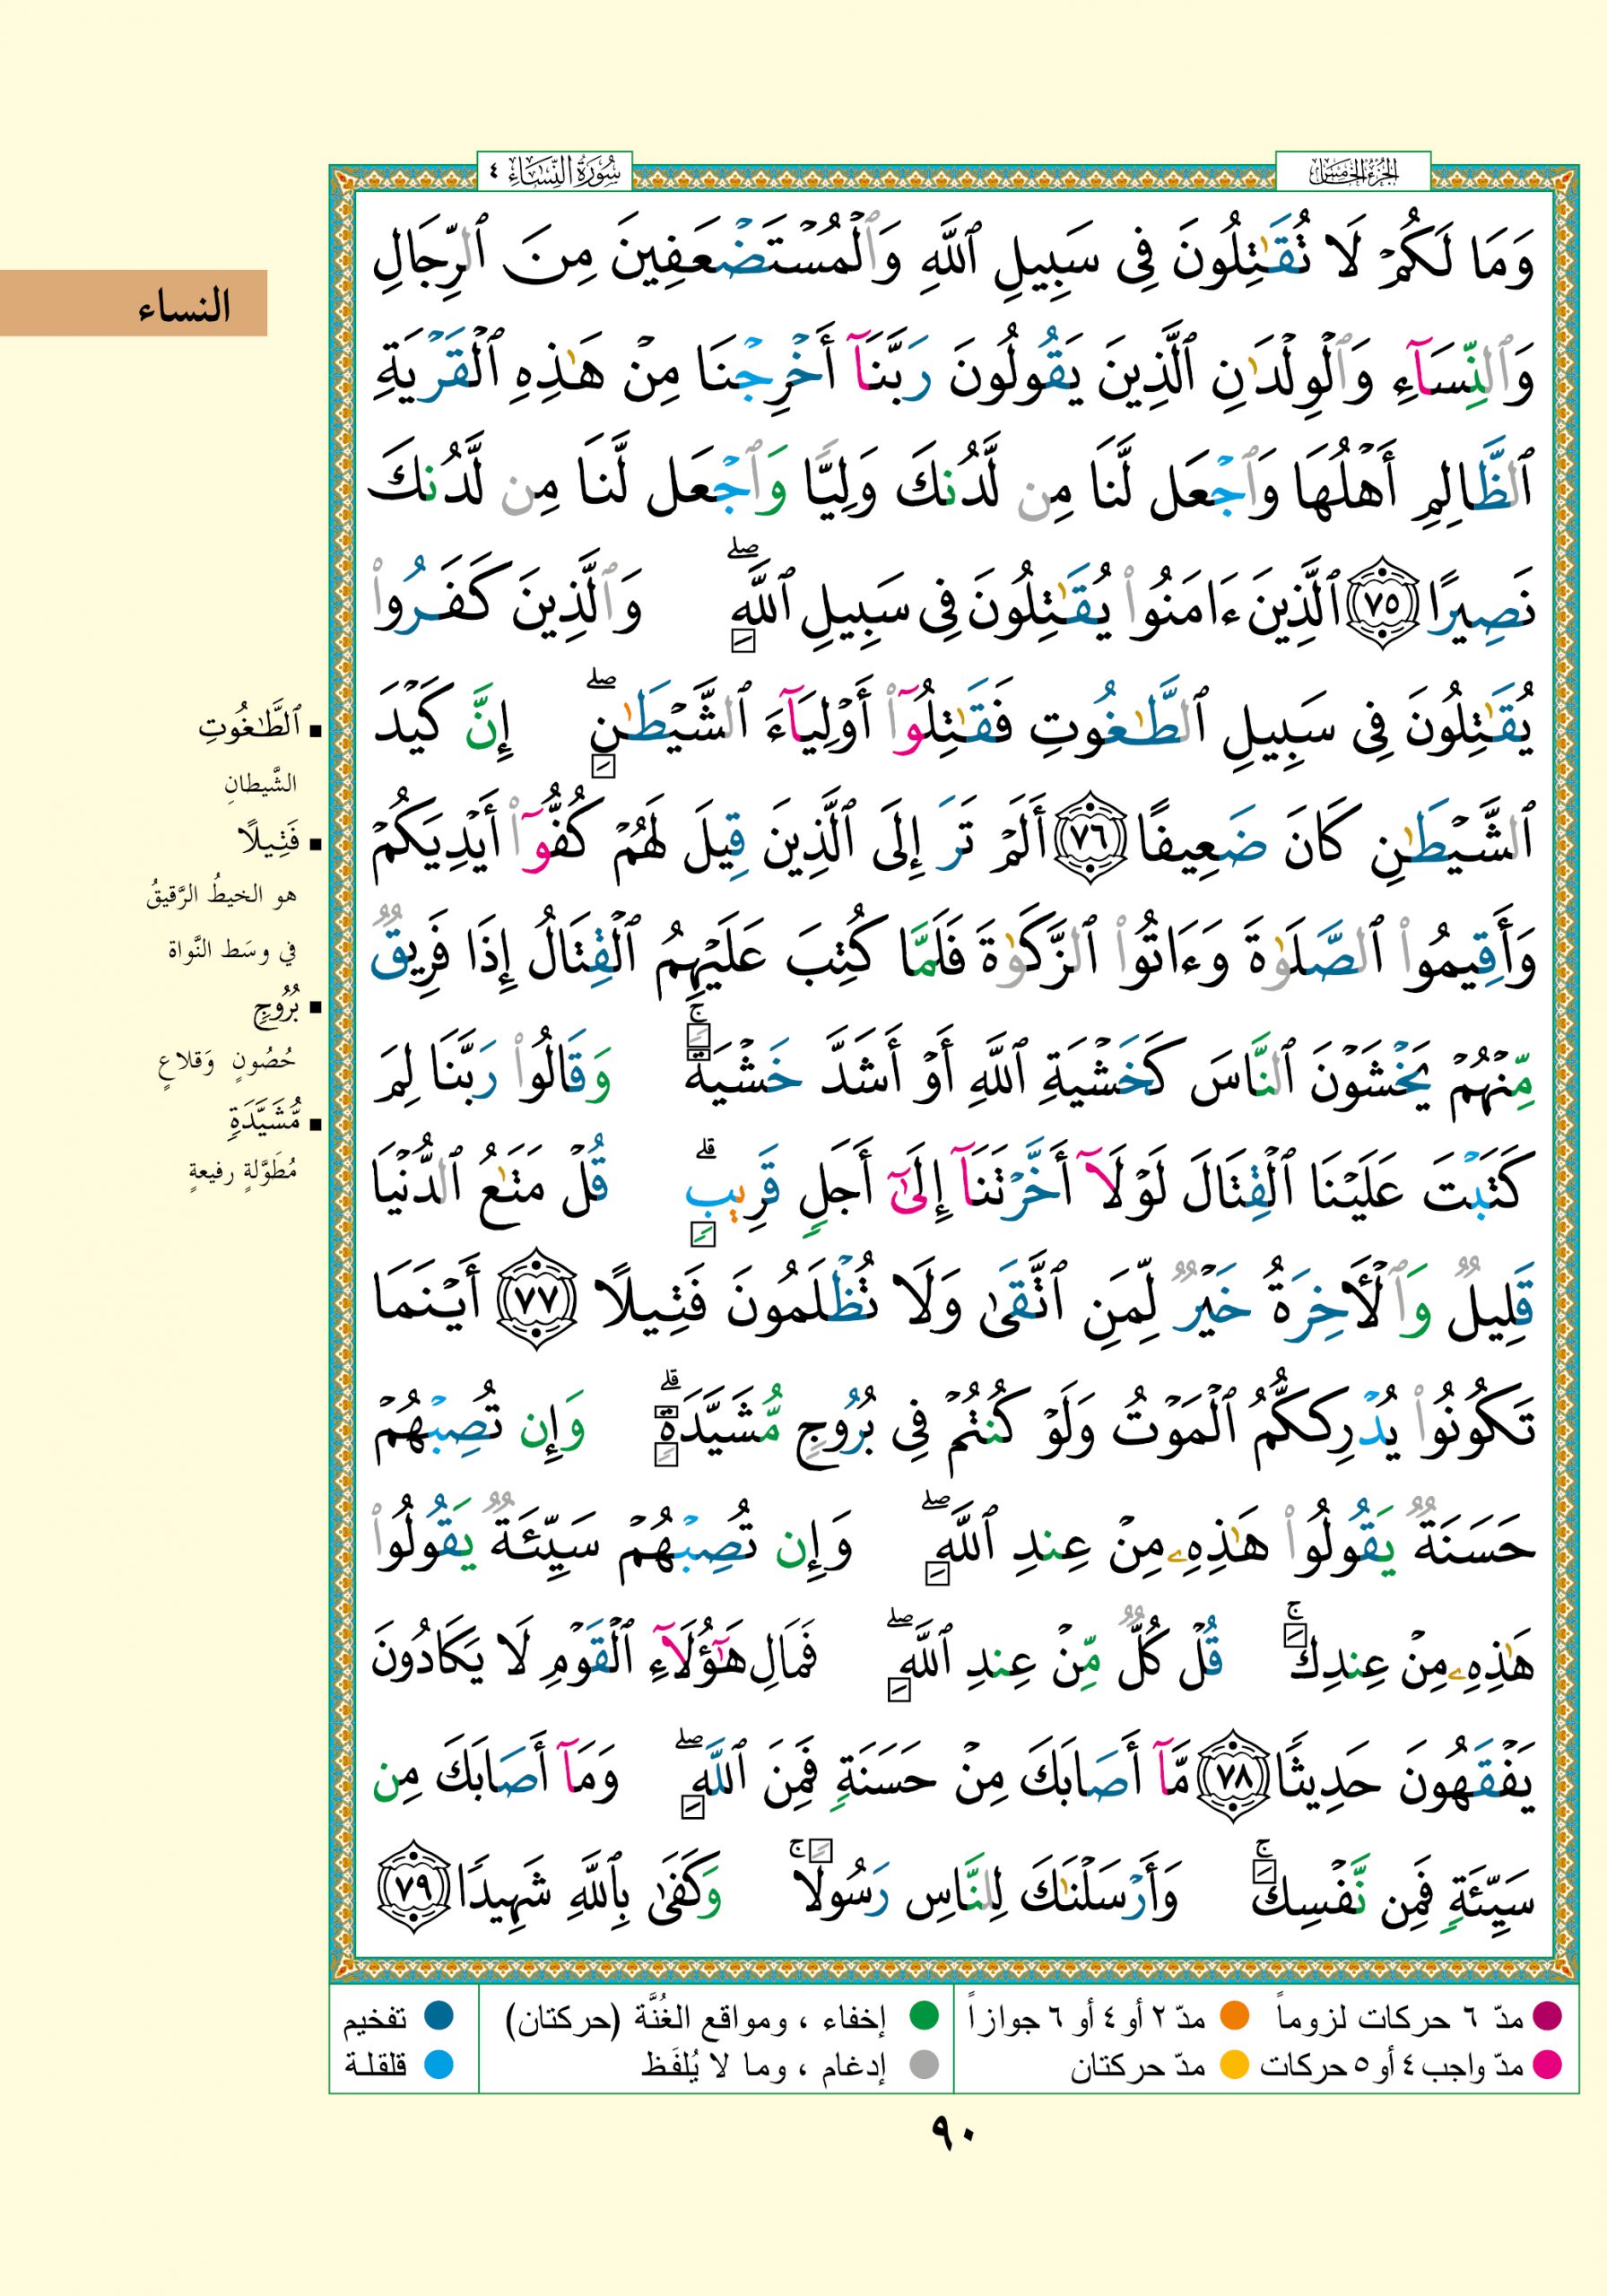 الجزء الخامس
سورة النساء ٤
النساء
وَمَا لَكُمْ لَا تُقَٰتِلُونَ فِى سَبِيلِ ٱللَّهِ وَٱلْمُسْتَضْعَفِينَ مِنَ ٱلرِّجَالِ
وَٱلنِّسَآءِ وَٱلْوِلْدَٰنِ ٱلَّذِينَ يَقُولُونَ رَبَّنَآ أَخْرِجْنَا مِنْ هَٰذِهِ ٱلْقَرْيَةِ
ٱلظَّالِمِ أَهْلُهَا وَٱجْعَل لَّنَا مِن لَّدُنكَ وَلِيًّا وَٱجْعَل لَّنَا مِن لَّدُنكَ
نَصِيرًا ٧٥ ٱلَّذِينَ ءَامَنُوا۟ يُقَٰتِلُونَ فِى سَبِيلِ ٱللَّهِ ۖ وَٱلَّذِينَ كَفَرُوا۟
يُقَٰتِلُونَ فِى سَبِيلِ ٱلطَّٰغُوتِ فَقَٰتِلُوٓا۟ أَوْلِيَآءَ ٱلشَّيْطَٰنِ ۖ إِنَّ كَيْدَ
ٱلشَّيْطَٰنِ كَانَ ضَعِيفًا ٧٦ أَلَمْ تَرَ إِلَى ٱلَّذِينَ قِيلَ لَهُمْ كُفُّوٓا۟ أَيْدِيَكُمْ
وَأَقِيمُوا۟ ٱلصَّلَوٰةَ وَءَاتُوا۟ ٱلزَّكَوٰةَ فَلَمَّا كُتِبَ عَلَيْهِمُ ٱلْقِتَالُ إِذَا فَرِيقٌ
مِّنْهُمْ يَخْشَوْنَ ٱلنَّاسَ كَخَشْيَةِ ٱللَّهِ أَوْ أَشَدَّ خَشْيَةً ۚ وَقَالُوا۟ رَبَّنَا لِمَ
كَتَبْتَ عَلَيْنَا ٱلْقِتَالَ لَوْلَآ أَخَّرْتَنَآ إِلَىٰٓ أَجَلٍ قَرِيبٍ ۗ قُلْ مَتَٰعُ ٱلدُّنْيَا
قَلِيلٌ وَٱلْأَخِرَةُ خَيْرٌ لِّمَنِ ٱتَّقَىٰ وَلَا تُظْلَمُونَ فَتِيلًا ٧٧ أَيْنَمَا
تَكُونُوا۟ يُدْرِككُّمُ ٱلْمَوْتُ وَلَوْ كُنتُمْ فِى بُرُوجٍ مُّشَيَّدَةٍ ۗ وَإِن تُصِبْهُمْ
حَسَنَةٌ يَقُولُوا۟ هَٰذِهِۦ مِنْ عِندِ ٱللَّهِ ۖ وَإِن تُصِبْهُمْ سَيِّئَةٌ يَقُولُوا۟
هَٰذِهِۦ مِنْ عِندِكَ ۚ قُلْ كُلٌّ مِّنْ عِندِ ٱللَّهِ ۖ فَمَالِ هَٰٓؤُلَآءِ ٱلْقَوْمِ لَا يَكَادُونَ
يَفْقَهُونَ حَدِيثًا ٧٨ مَّآ أَصَابَكَ مِنْ حَسَنَةٍ فَمِنَ ٱللَّهِ ۖ وَمَآ أَصَابَكَ مِن
سَيِّئَةٍ فَمِن نَّفْسِكَ ۚ وَأَرْسَلْنَٰكَ لِلنَّاسِ رَسُولًا ۚ وَكَفَىٰ بِٱللَّهِ شَهِيدًا ٧٩
ٱلطَّٰغُوتِ
الشَّيطانِ
فَتِيلًا
هو الخيطُ الرَّقيقُ
في وسَط النَّواة
بُرُوجٍ
حُصُونٍ وَقلاعٍ
مُّشَيَّدَةٍ
مُطَوَّلةٍ رفيعةٍ
مدّ ٦ حركات لزوماً مدّ ٢ أو ٤ أو ٦ جوازاً إخفاء ، ومواقع الغُنَّة (حركتان) تفخيم
مدّ واجب ٤ أو ٥ حركات مدّ حركتان إدغام ، وما لا يُلفَظ قلقلة
٩٠